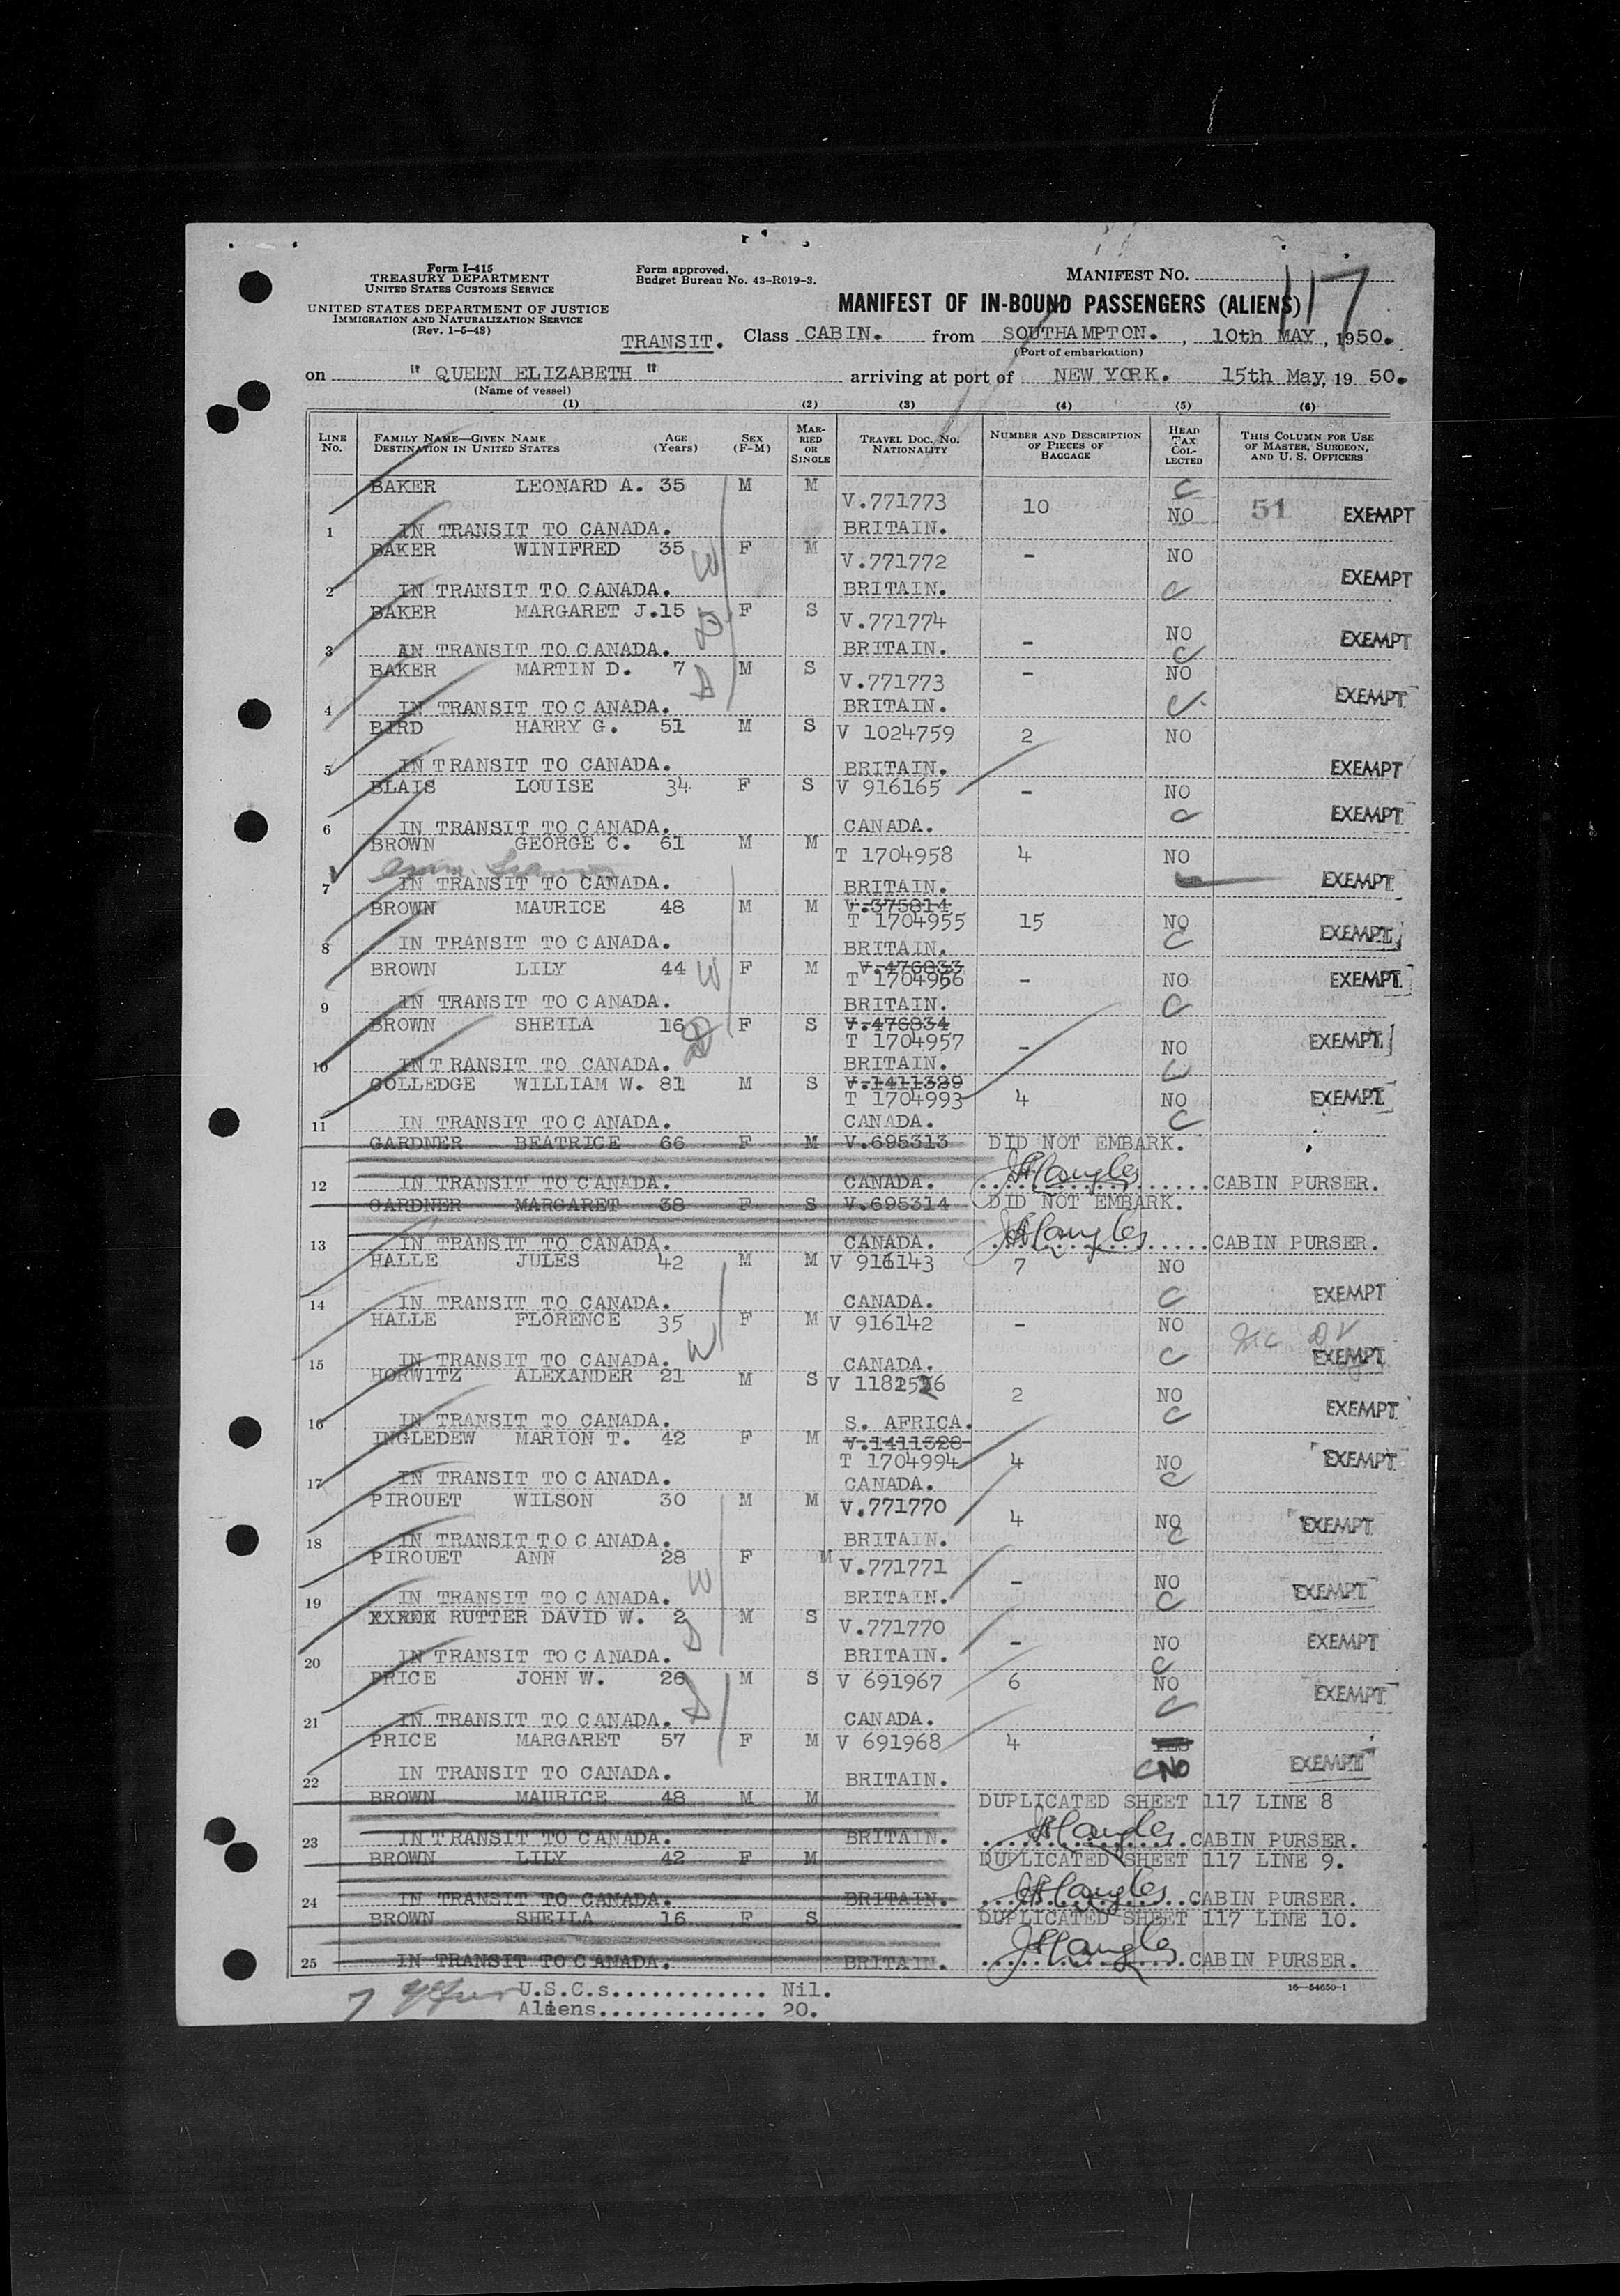 Form I-415
TREASURY DEPARTMENT
UNITED STATES CUSTOMS SERVICE
UNITED STATES DEPARTMENT OF JUSTICE
IMMIGRATION AND NATURALIZATION SERVICE
(Rev. 1-5-48)
Form approved.
Budget Bureau No. 43-R019-3.
MANIFEST NO. 117
MANIFEST OF IN-BOUND PASSENGERS (ALIENS)
TRANSIT. Class CABIN. from SOUTHAMPTON. , 10th MAY , 1950.
(Port of embarkation)
on " QUEEN ELIZABETH " arriving at port of NEW YORK. 15th May, 19 50.
(Name of vessel)
(1) (2) (3) (4) (5) (6)
LINE No. FAMILY NAME—GIVEN NAME DESTINATION IN UNITED STATES AGE (Years) SEX (F-M) MARRIED OR SINGLE TRAVEL DOC. NO. NATIONALITY NUMBER AND DESCRIPTION OF PIECES OF BAGGAGE HEAD TAX COLLECTED THIS COLUMN FOR USE OF MASTER, SURGEON, AND U. S. OFFICERS
BAKER LEONARD A. 35 M M V.771773 10 C NO 51 EXEMPT
1 IN TRANSIT TO CANADA. BRITAIN.
BAKER WINIFRED 35 F M V.771772 - NO EXEMPT
2 IN TRANSIT TO CANADA. W BRITAIN. C
BAKER MARGARET J. 15 F S V.771774 - NO EXEMPT
3 IN TRANSIT TO CANADA. BRITAIN. C
BAKER MARTIN D. 7 M S V.771773 - NO EXEMPT
4 IN TRANSIT TO CANADA. BRITAIN. C
BIRD HARRY G. 51 M S V 1024759 2 NO
5 IN TRANSIT TO CANADA. BRITAIN. EXEMPT
BLAIS LOUISE 34 F S V 916165 - NO EXEMPT
6 IN TRANSIT TO CANADA. CANADA. C
BROWN GEORGE C. 61 M M T 1704958 4 NO
7 IN TRANSIT TO CANADA. BRITAIN. EXEMPT
BROWN MAURICE 48 M M V.375814 T 1704955 15 NO C EXEMPT
8 IN TRANSIT TO CANADA. BRITAIN.
BROWN LILY 44 W F M V.476833 T 1704966 - NO EXEMPT
9 IN TRANSIT TO CANADA. BRITAIN. C
BROWN SHEILA 16 F S V.476834 T 1704957 - NO EXEMPT
10 IN TRANSIT TO CANADA. BRITAIN. C
COLLEDGE WILLIAM W. 81 M S V.1411329 T 1704993 4 NO EXEMPT
11 IN TRANSIT TO CANADA. CANADA. C
GARDNER BEATRICE 66 F M V.695313 DID NOT EMBARK.
12 IN TRANSIT TO CANADA. CANADA. CABIN PURSER.
GARDNER MARGARET 38 F S V.695314 DID NOT EMBARK.
13 IN TRANSIT TO CANADA. CANADA. CABIN PURSER.
HALLE JULES 42 M M V 916143 7 NO
14 IN TRANSIT TO CANADA. CANADA. C EXEMPT
HALLE FLORENCE 35 F M V 916142 - NO
15 IN TRANSIT TO CANADA. W CANADA. C EXEMPT
HORWITZ ALEXANDER 21 M S 2 NO EXEMPT
16 IN TRANSIT TO CANADA. S. AFRICA. C
INGLEDEW MARION T. 42 F M V.1411328 T 1704994 4 NO EXEMPT
17 IN TRANSIT TO CANADA. CANADA. C
PIROUET WILSON 30 M M V.771770 4 NO EXEMPT
18 IN TRANSIT TO CANADA. BRITAIN. C
PIROUET ANN 28 F M V.771771 - NO EXEMPT
19 IN TRANSIT TO CANADA. W BRITAIN. C
RUTTER DAVID W. 2 M S V.771770 - NO EXEMPT
20 IN TRANSIT TO CANADA. BRITAIN. C
PRICE JOHN W. 26 M S V 691967 6 NO EXEMPT
21 IN TRANSIT TO CANADA. CANADA. C
PRICE MARGARET 57 F M V 691968 4 YES
22 IN TRANSIT TO CANADA. BRITAIN. C NO EXEMPT
BROWN MAURICE 48 M M DUPLICATED SHEET 117 LINE 8
23 IN TRANSIT TO CANADA. BRITAIN. CABIN PURSER.
BROWN LILY 42 F M DUPLICATED SHEET 117 LINE 9.
24 IN TRANSIT TO CANADA. BRITAIN. CABIN PURSER.
BROWN SHEILA 16 F S DUPLICATED SHEET 117 LINE 10.
25 IN TRANSIT TO CANADA. BRITAIN. CABIN PURSER.
U.S.C.s............ Nil.
Aliens.............. 20.
16—54650-1